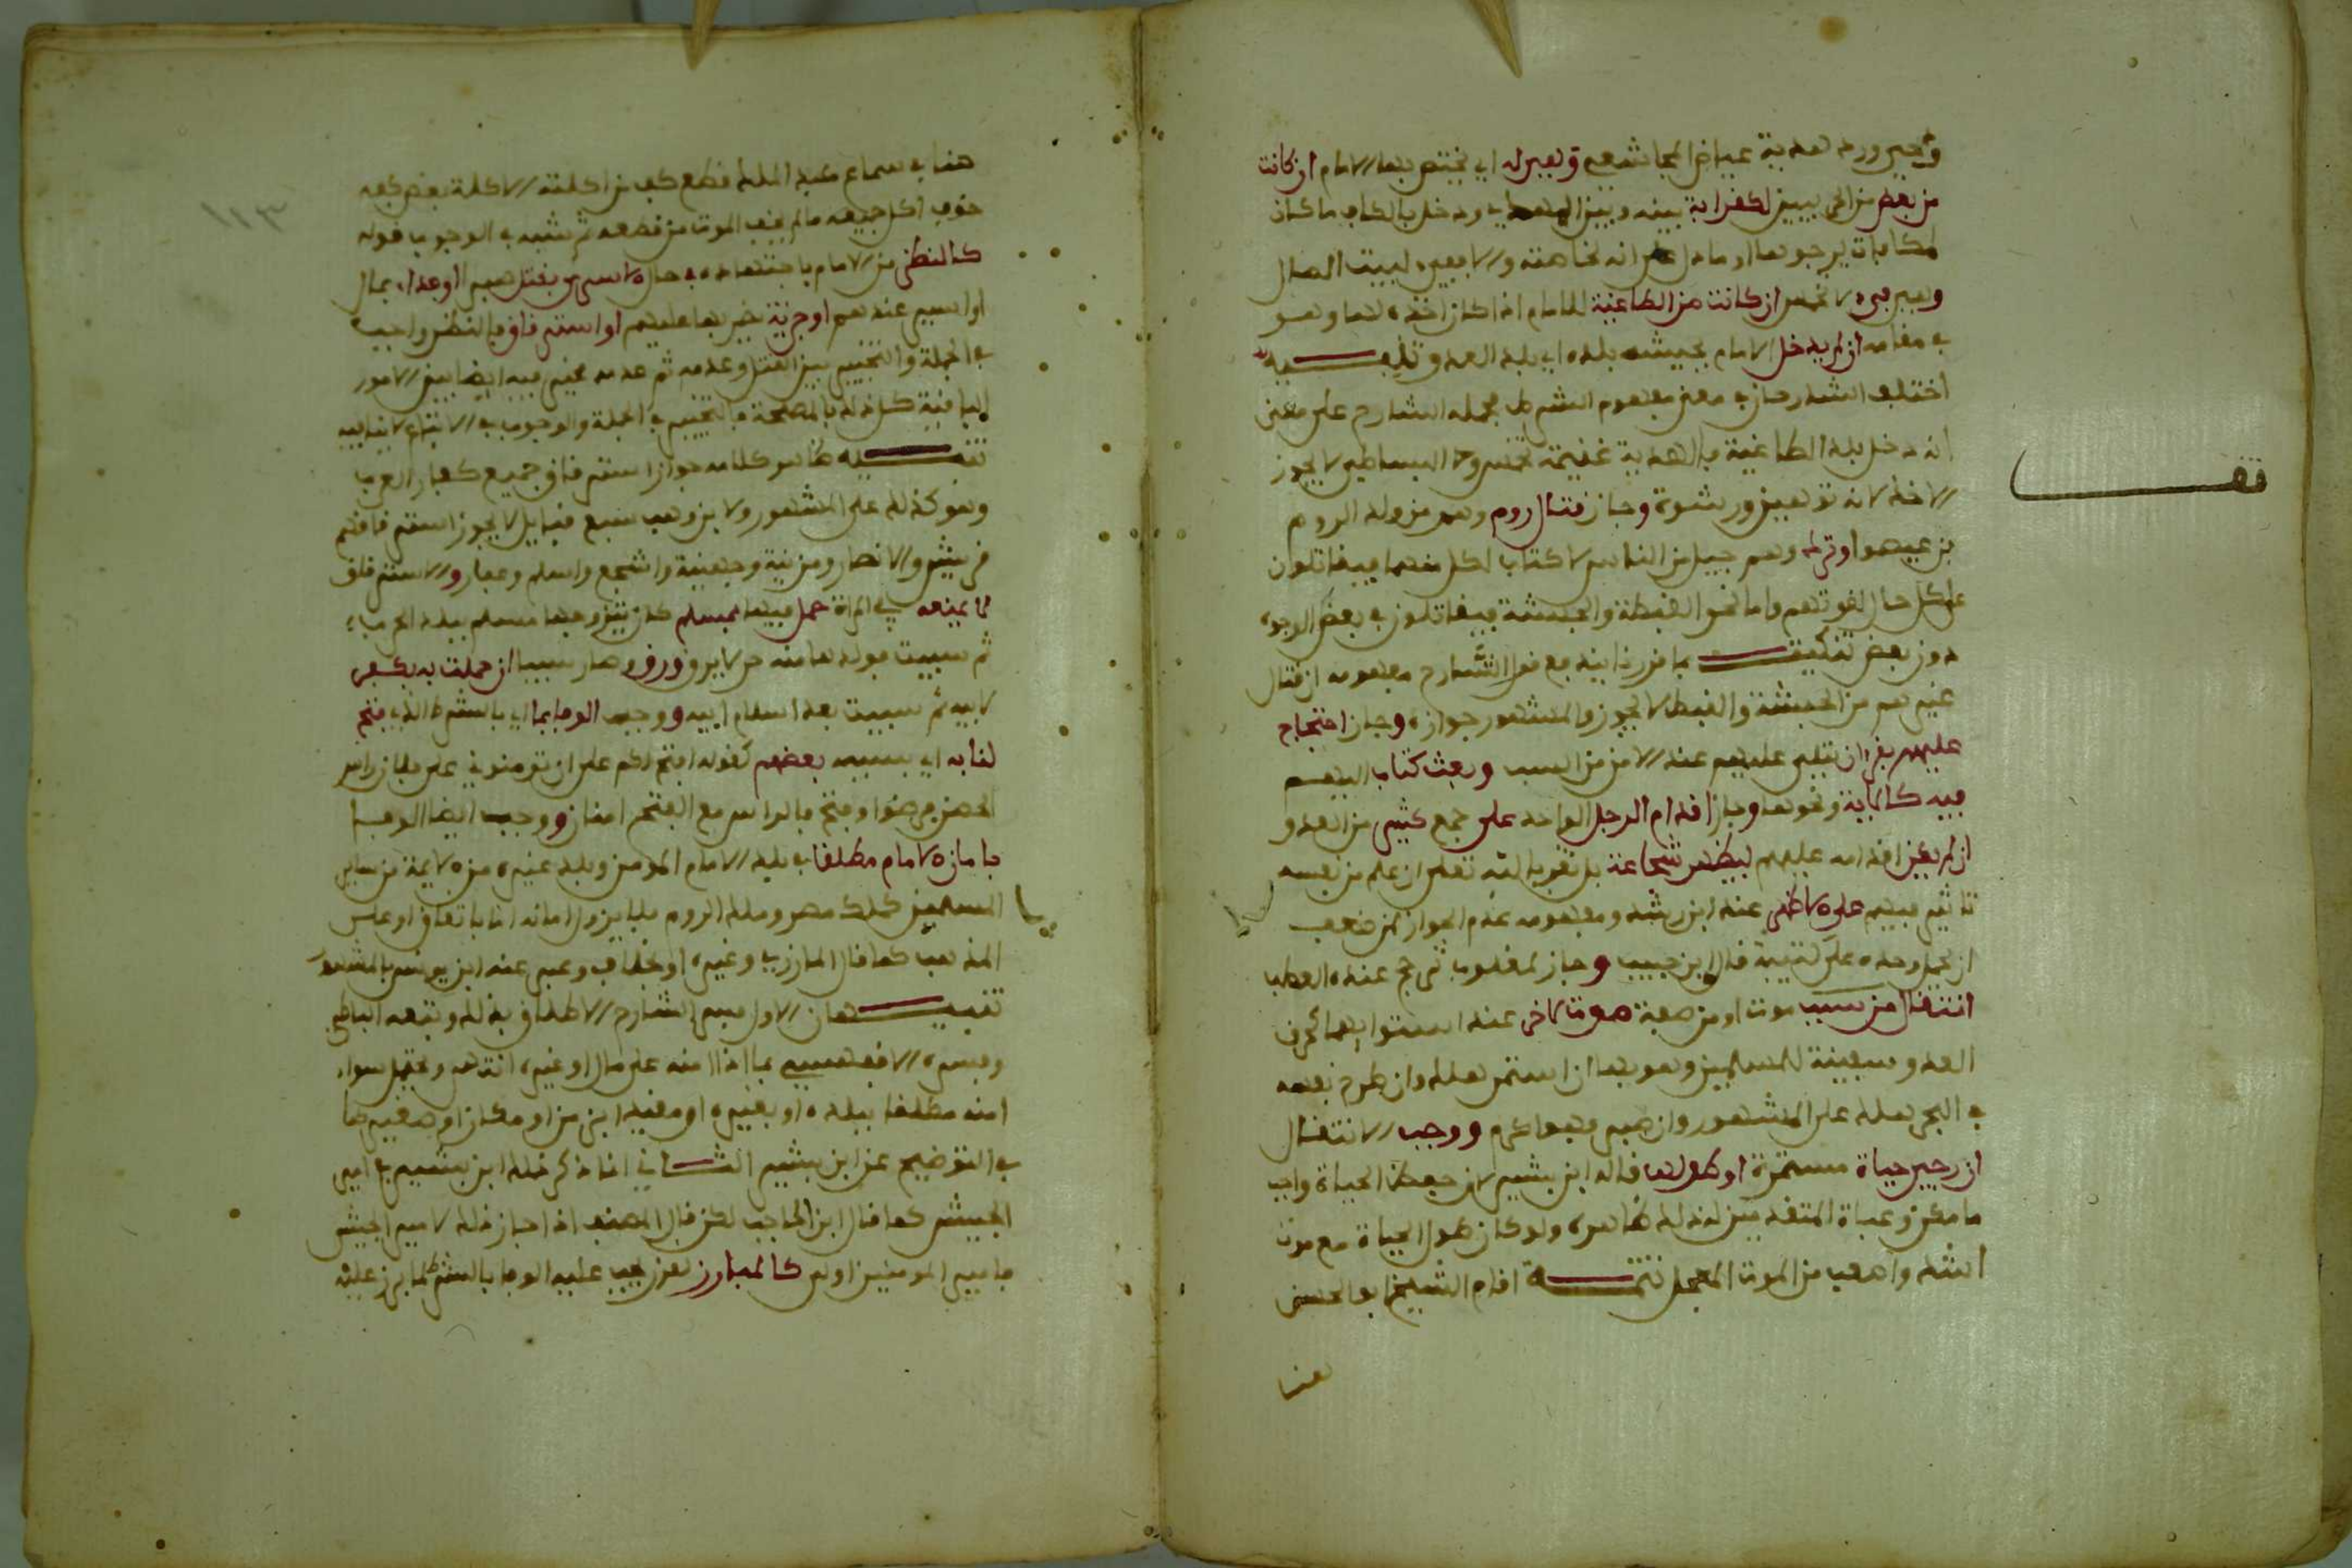 وخير ورد هدية عياض المجاشعي وهي له اي يختص بها الامام ان كانت
من بعض من الحربيين لكقرابة بينه وبين المهدي ودخل بالكاف ما كان
لمكافات يرجوها او مادل على انه نحا هذه ولا بغيره لبيت المال
وهي فيء لا تخمس ان كانت من الطاغية للامام اذا كان اخذه لها وهو
في مقامه ان لم يدخل الامام بجيشه بلده اي بلد العدو تنبيه
اختلف الشارحان في معنى مفهوم الشرط فحمله الشارح على معنى
ان دخل بلد الطاغية فالهدية غنيمة تخمس وحا البساطي لا يجوز
الاخذ لانه توهين ورشوة وجاز قتال روم وهم من ولد الروم
بن عيصو او ترك وهم جيل من الناس لا كتاب لكل منهما فيقاتلون
على كل حال لقوتهم واما نحو القبطة والحبشة فيقاتلون في بعض الوجوه
دون بعض تنكيت بما قررنا بينه مع قول الشارح مفهومه ان قتال
غيرهم من الحبشة والقبط لا يجوز والمشهور جوازه وجاز احتجاج
عليهم بقران يتلى عليهم عند الامن من السب وبعث كتاب اليهم
فيه كالاية ونحوها وجاز اقدام الرجل الواحد على جمع كثير من العدو
ان لم يكن اقدامه عليهم ليظهر شجاعة بل تقربا لله تعلى ان علم من نفسه
تاثير فيهم على الاظهر عند ابن رشد ومفهومه عدم الجواز لمن ضعف
ان يحمل وحده على كتيبة قال ابن حبيب وجاز لمغلوب ترجح عنده العطب
انتقال من سبب موت او من صفة موت لاخر عند استوائهما كحرق
العدو سفينة للمسلمين وهو بها ان استمر هلك وان طرح نفسه
في البحر هلك على المشهور وان صبر فهو اكرم ووجب الانتقال
ان رجي حياة مستمرة او طولها قاله ابن بشير لان حفظ الحياة واجب
ما امكن وعبارة المتقدمين لذلك ظاهره ولو كان طول الحياة مع موت
اشد واصعب من الموت المعجل تتمة اقام الشيخ ابو الحسن
هنا
قف
هنا في سماع عبد الملك قطع كف من اكلته الاكلة بعض كفه
خوف اكل جميعه ما لم يخف الموت من قطعه ثم شبه في الوجوب قوله
كالنظر من الامام باجتهاده في حال الاسرى بقتلهم او فداء بمال
او اسير عندهم او جزية يضربها عليهم او استرقاق فالنظر واجب
في الجملة والتخيير بين القتل وعدمه ثم عدمه مخير فيه ايضا بين الامور
الباقية كل ذلك بالمصلحة فالتخيير في الجملة والوجوب في الابتداء لا ينافيه
تنبيه ظاهر كلامه جواز استرقاق جميع كفار العرب
وهو كذلك على المشهور ولابن وهب سبع قبايل لا يجوز استرقاقهم
قريش والانصار ومزينة وجهينة واشجع واسلم وغفار والاسترقاق
لا يمنعه في المراة حمل فيها بمسلم كان يتزوجها مسلم ببلد الحرب
ثم سبيت فولدها منه حر لا يرق ورق وصار سبيا ان حملت به بكفر
لابيه ثم سبيت بعد اسلام ابيه ووجب الوفا بما اي بالشرط الذي فتح
لنا به اي بسببه بعضهم كقوله افتح لكم على ان تؤمنوني على فلان راس
الحصن فرضوا وفتح فالراس مع الفتح امنان ووجب ايضا الوفا
بامان الامام مطلقا في بلد الامام المومن وبلد غيره من الايمة من سائر
المسلمين كملك مصر وملك الروم فلا يزول امانه انا باتفاق او على
المذهب كما قال المازري وغيره او بخلاف وعبر عنه ابن يونس بالمشهور
تنبيهان الاول فسر الشارح الاطلاق بذلك وتبعه البساطي
وفسره الاقفهسي بما اذا امنه على مال او غيره انتهى ويحتمل سواء
امنه مطلقا ببلده او بغيره او مقيد ابزمن او مكان او صفة كما
في التوضيح عن ابن بشير الثاني انما ذكر ذلك ابن بشير في امير
الجيش كما قال ابن الحاجب لكن قال المصنف اذا جاز ذلك لامير الجيش
فامير المومنين اولى كالمبارز لقرن يجب عليه الوفا بالشرط لما برز عليه
١١٣